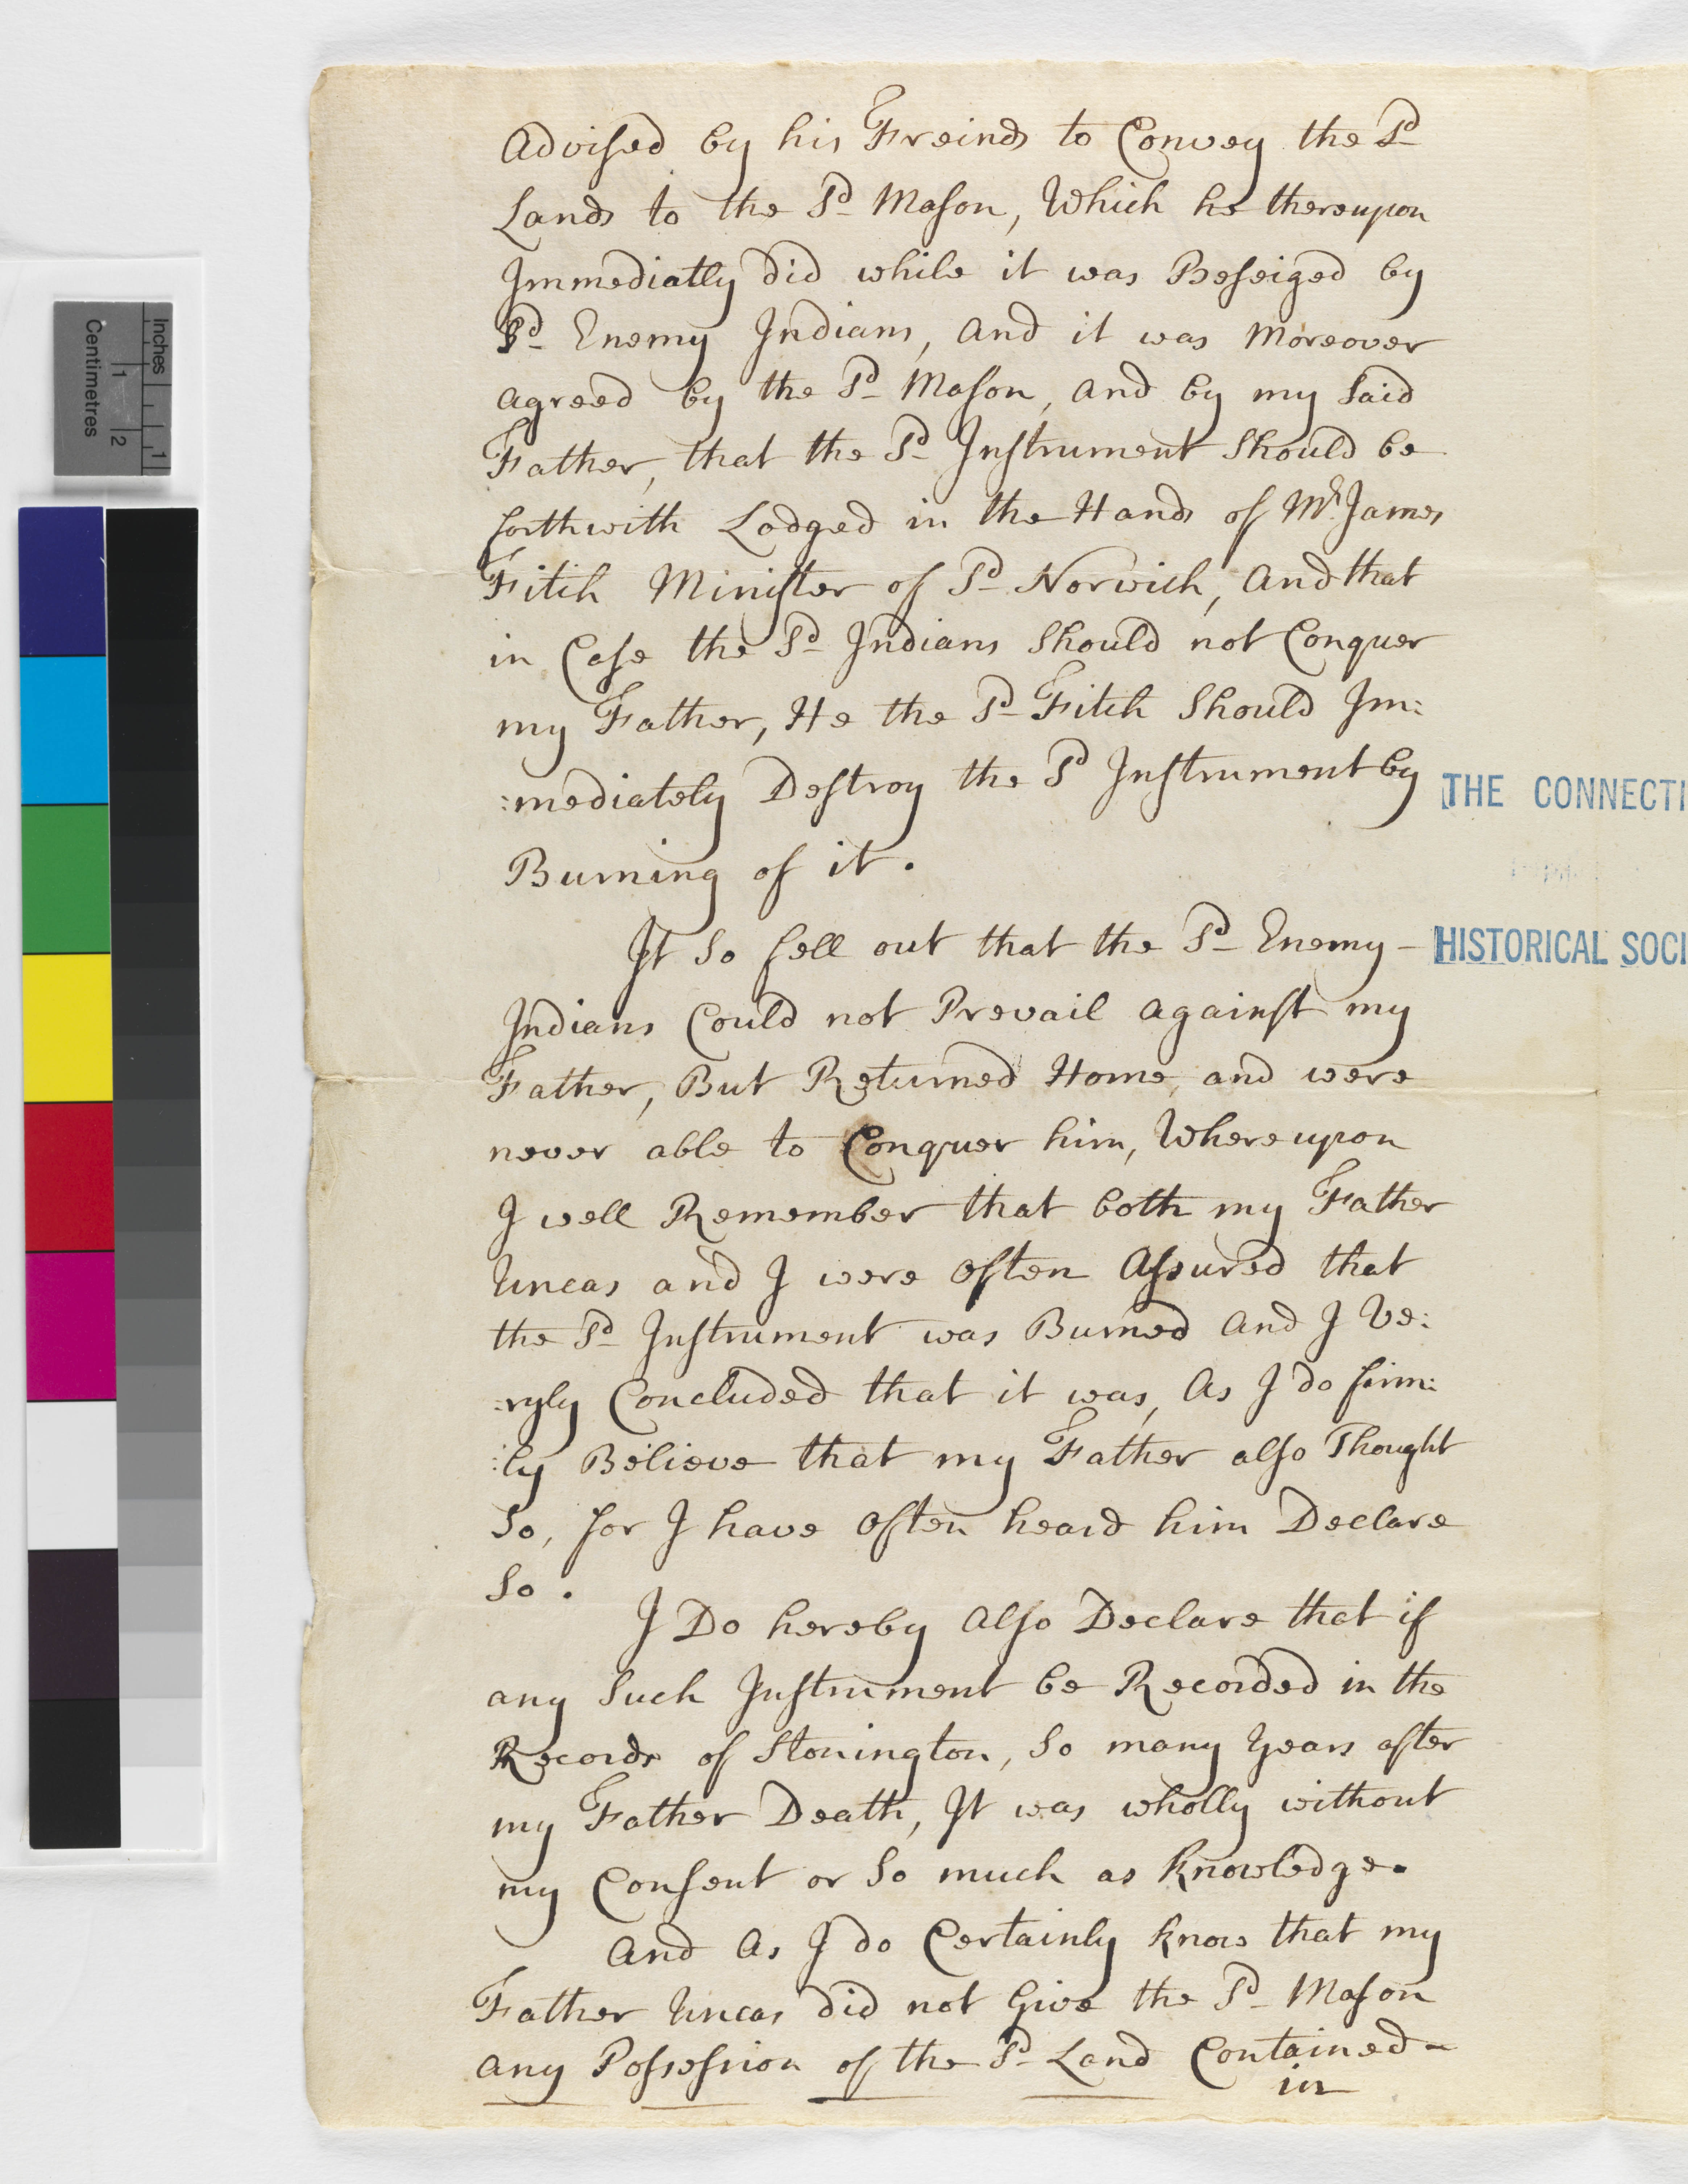 Advised by his Freinds to Convey the Sd
Lands to the Sd Mason, Which he thereupon
Immediatly did while it was Beseiged by
Sd Enemy Indians, and it was Moreover
agreed by the Sd Mason, and by my Said
Father, that the Sd Instrument Should be
forthwith Lodged in the Hands of Mr James
Fitch Minister of Sd Norwich, and that
in Case the Sd Indians Should not Conquer
my Father, He the Sd Fitch Should Im:
:mediately Destroy the Sd Instrument by
Burning of it.
It So fell out that the Sd Enemy
Indians Could not Prevail against my
Father, But Returned Home, and were
never able to Conquer him, Whereupon
I well Remember that both my Father
Uncas and I were often Assured that
the Sd Instrument was Burned and I Ve:
:ryly Concluded that it was, As I do firm:
:ly Believe that my Father also Thought
So, for I have often heard him Declare
So.
I Do hereby Also Declare that if
any Such Instrument be Recorded in the
Records of Stonington, So many Years after
my Father Death, It was wholly without
my Consent or So much as Knowledge.
And As I do Certainly know that my
Father Uncas did not Give the Sd Mason
any Possession of the Sd Land Contained
in
THE CONNECTI
HISTORICAL SOCI
Inches
1
Centimetres
1
2